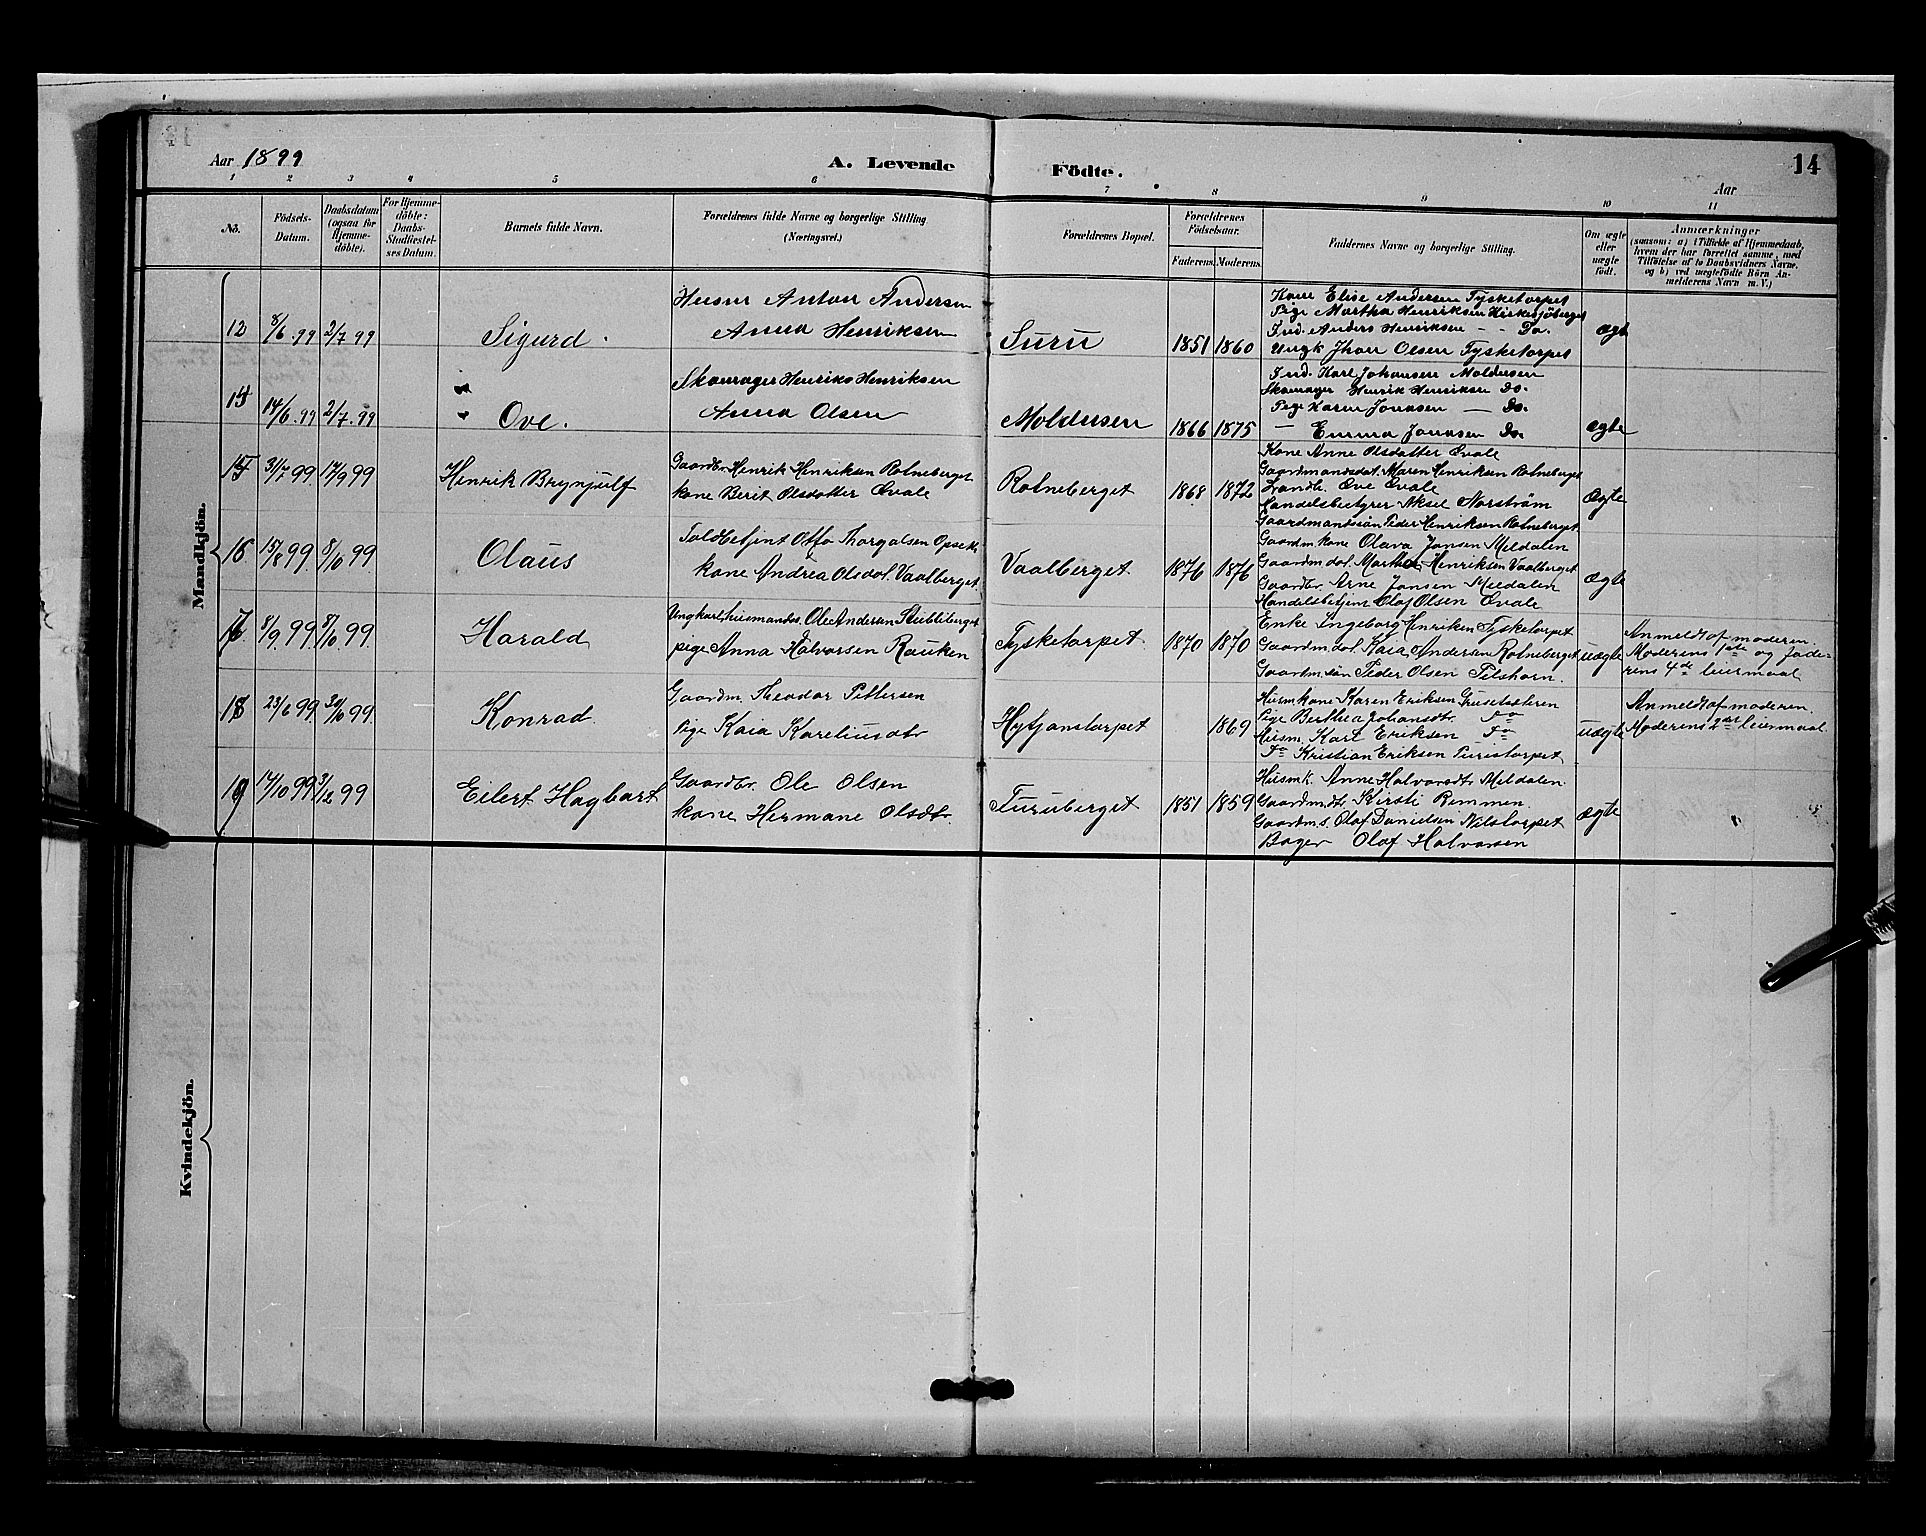 Aar 1899
A. Levende
Födte.
14
Aar
1 2 3 4 5 6 7 8 9 10 11
No.
Födsels-
Datum.
Daabsdatum
(ogsaa for
Hjemme-
döbte).
For Hjemme-
döbte:
Daabs-
Stadfæstel-
ses Datum.
Barnets fulde Navn.
Forældrenes fulde Navne og borgerlige Stilling
(Næringsvei.)
Forældrenes Bopæl.
Forældrenes
Födselsaar.
Faderens. Moderens.
Faddernes Navne og borgerlige Stilling.
Om ægte
eller
uægte
födt.
Anmærkninger
(saasom: a) i Tilfælde af Hjemmedaab,
hvem der har forrettet samme, med
Tilföielse af to Daabsvidners Navne,
og b) ved uægtefödte Börn An-
melderens Navn m. V.)
Mandkjön.
12 8/6 99 2/7 99
Sigurd.
Anton Andersen
Anna Henriksen
Suru
1851 1860
Kone Elise Andersen Tysketorpet
Pige Martha Henriksen
Ind. Anders Henriksen - - Do.
Ungk Jhon Olsen Tysketorpet
ægte
14/6 99 2/7 99
Ove.
Skomager Henriks Henriksen
Anna Olsen
Moldusen
1866 1875
Ind. Karl Johansen Moldusen
Skomager Henrik Henriksen Do.
Pige Karen Jonasen — Do.
— Emma Jonasen Do.
ægte
15 31/7 99 17/9 99
Henrik Brynjulf
Gaardbr. Henrik Henriksen Rotneberget
kone Berit Olsdatter Øvale
Rotneberget
1868 1872
Kone Anne Olsdatter Øvale
Gaardmandsdat. Maren Henriksen Rotneberget
Landh. Ove Øvale
Handelsbestyrer Aksel Norström
Gaardmandssön Peder Henriksen Rotneberget.
ægte
16 15/8 99 8/10 99
Olaus
Toldbetjent Otto Thorgalsen
kone Andrea Olsdat. Vaalberget
Vaalberget.
1876 1876
Gaardm. kone Olava Jansen Meldalen
Gaardm dat. Martha Henriksen Vaalberget
Gaardbr Arne Jansen Meldalen
Handelsbetjent Olaf Olsen Øvale
ægte
17 8/9 99 8/10 99
Harald
Ungkarl, husmandss. Ole Andersen
pige Anna Halvorsen Rauken
Tysketorpet
1870 1870
Enke Ingeborg Henriksen Tysketorpet
Gaardm dat. Kaia Andersen Rotneberget
Gaardm. sön Peder Olsen
uægte
Anmeldt af moderen.
Moderens 1ste og fade-
rens 4de leiermaal
18 23/6 99 99
Konrad.
Gaardm. Theodor Pettersen
Pige Kaia Kareliusdtr
Hytjanstorpet
1869
Husm. kone Karen Eriksen
Pige Berthea Johansdtr. Do
Husm. Karl Eriksen Do
Do Kristian Eriksen Puristorpet
uægte
Anmeldt af moderen.
Moderens 2det leiermaal.
19 17/10 99 3/12 99
Eilert Hagbart
Gaardbr. Ole Olsen
kone Hermane Olsdtr.
Furuberget
1851 1859
Husmk. Anne Halvorsdtr Meldalen
Gaardmdtr Kirsti Remmen.
Gaardms. Olaf Danielsen Nilstorpet
Bager Olaf Halvorsen
ægte
Kvindekjön.